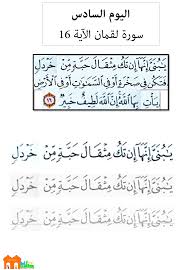 اليوم السادس
سورة لقمان الآية 16
يَٰبُنَىَّ إِنَّهَآ إِن تَكُ مِثْقَالَ حَبَّةٍ مِّنْ خَرْدَلٍ
فَتَكُن فِى صَخْرَةٍ أَوْ فِى ٱلسَّمَٰوَٰتِ أَوْ فِى ٱلْأَرْضِ
يَأْتِ بِهَا ٱللَّهُ إِنَّ ٱللَّهَ لَطِيفٌ خَبِيرٌ ١٦
يَٰبُنَىَّ إِنَّهَآ إِن تَكُ مِثْقَالَ حَبَّةٍ مِّنْ خَرْدَلٍ
يَٰبُنَىَّ إِنَّهَآ إِن تَكُ مِثْقَالَ حَبَّةٍ مِّنْ خَرْدَلٍ
يَٰبُنَىَّ إِنَّهَآ إِن تَكُ مِثْقَالَ حَبَّةٍ مِّنْ خَرْدَلٍ